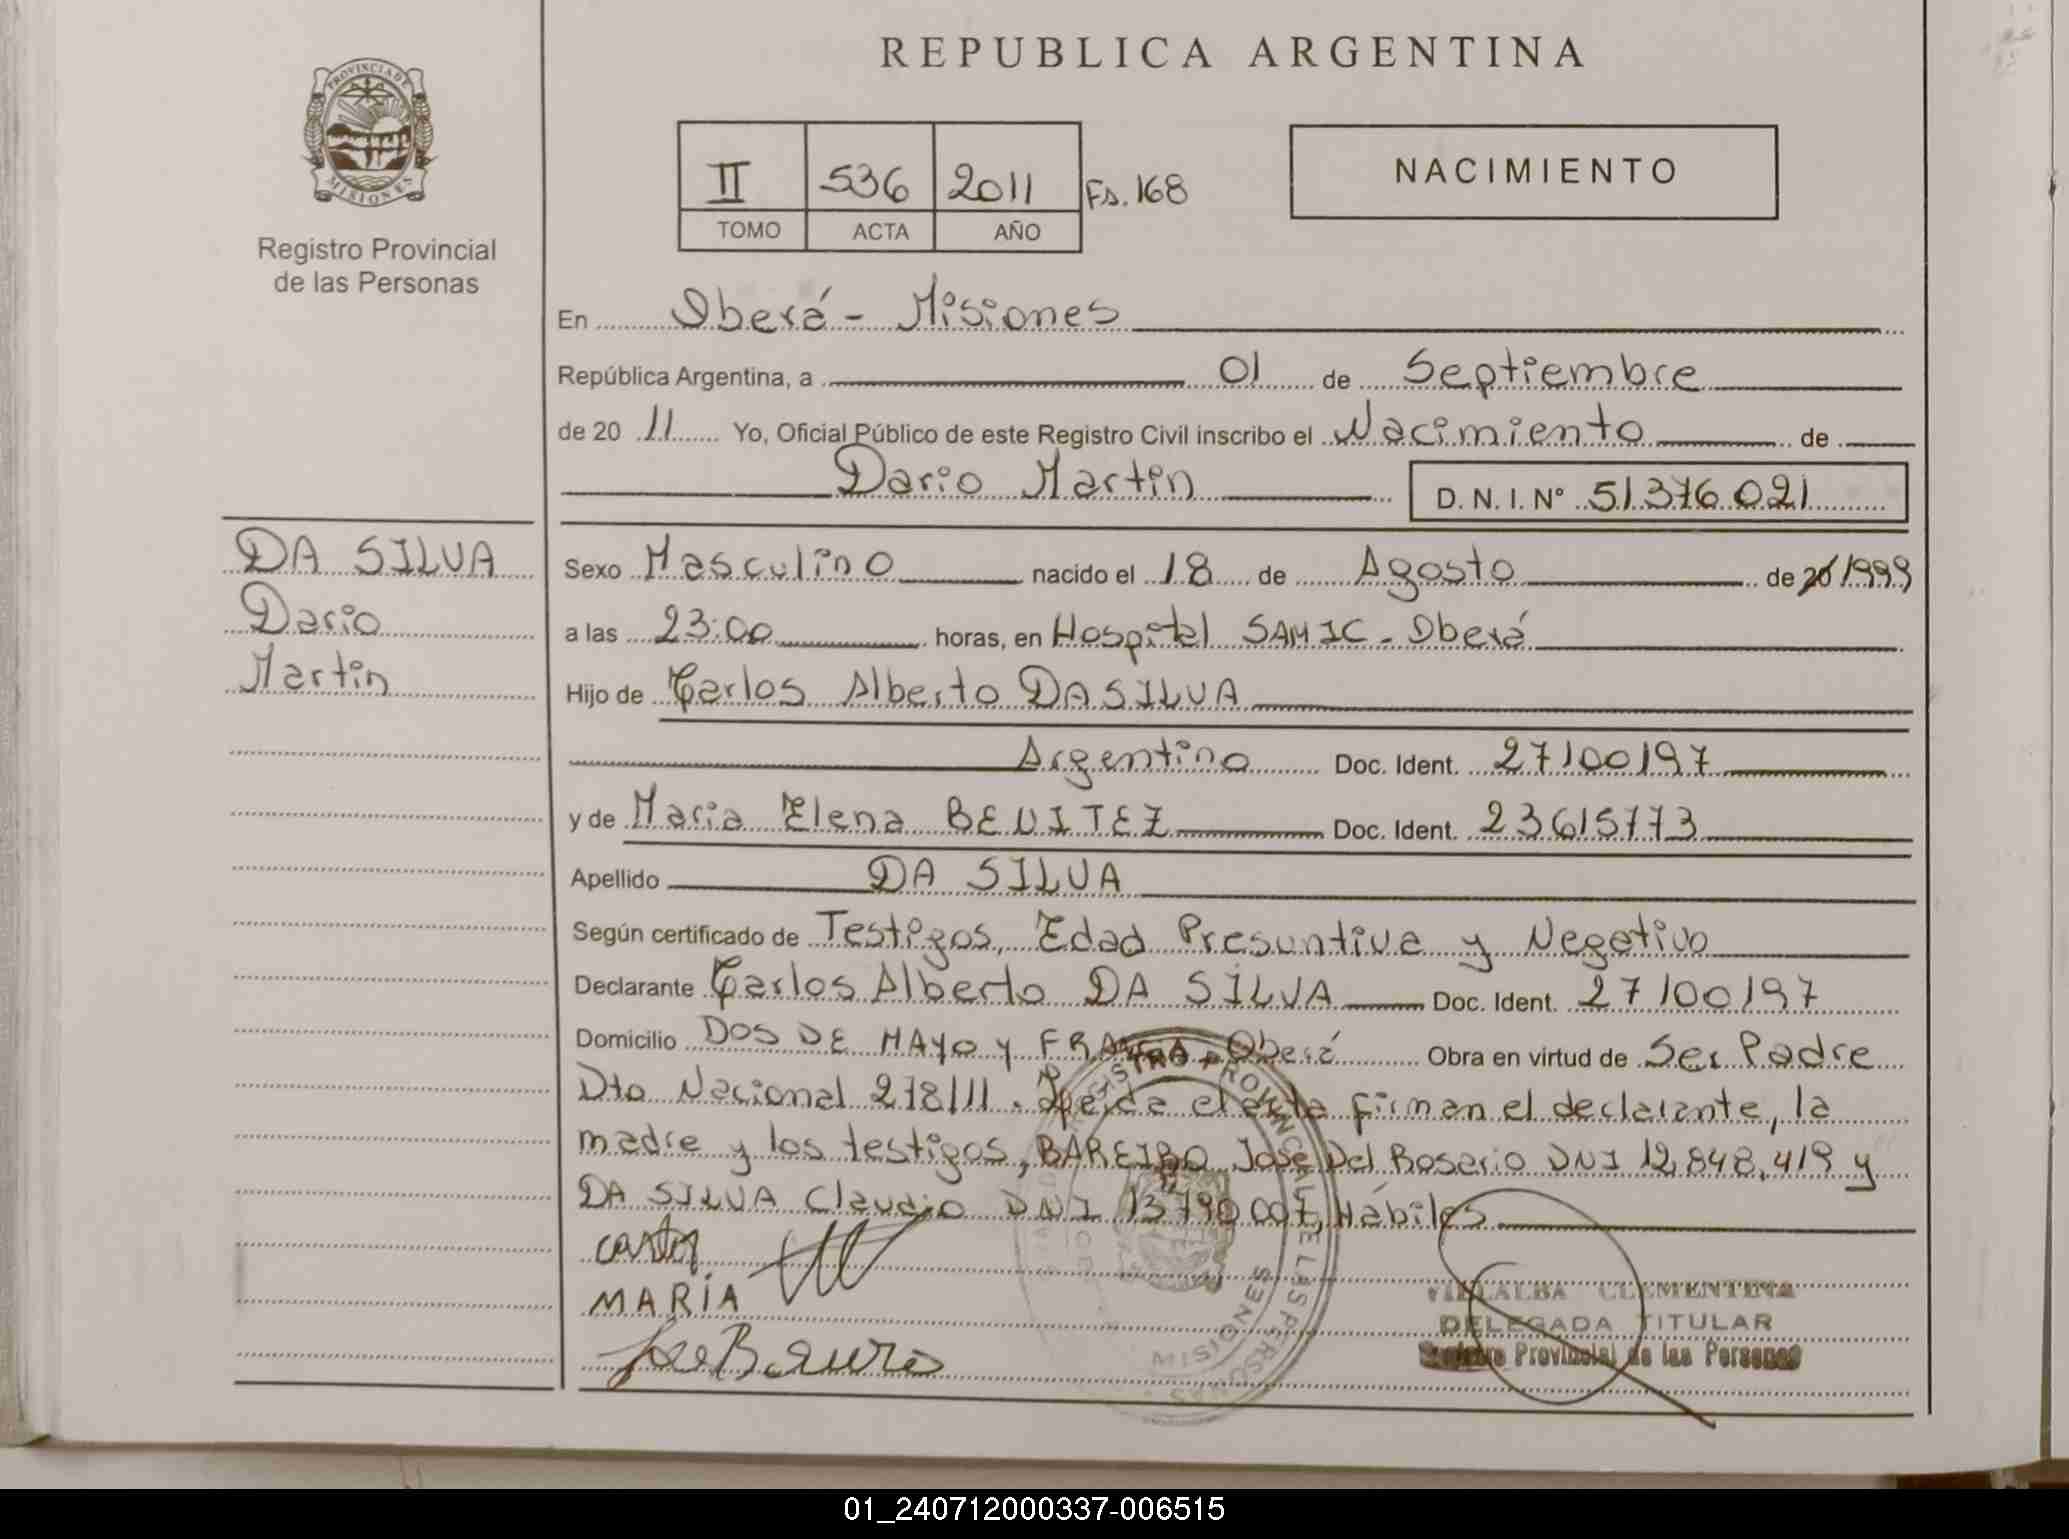 REPUBLICA ARGENTINA
PROVINCIA DE
MISIONES
Registro Provincial
de las Personas
II 536 2011 Fs. 168
TOMO ACTA AÑO
NACIMIENTO
En Oberá - Misiones
República Argentina, a 01 de Septiembre
de 20 11 Yo, Oficial Público de este Registro Civil inscribo el Nacimiento de
Dario Martin D.N.I. Nº 51.376.021
DA SILVA
Dario
Martin
Sexo Masculino nacido el 18 de Agosto de 20/1999
a las 23:00 horas, en Hospital SAMIC - Oberá
Hijo de Carlos Alberto DA SILVA
Argentino Doc. Ident. 27100197
y de Maria Elena BENITEZ Doc. Ident. 23615773
Apellido DA SILVA
Según certificado de Testigos, Edad Presuntiva y Negativo
Declarante Carlos Alberto DA SILVA Doc. Ident. 27100197
Domicilio DOS DE MAYO y FRANCIA Oberá Obra en virtud de Ser Padre
Dto Nacional 278/11. Leida el acta firman el declarante, la
madre y los testigos, BAREIRO José Del Rosario DNI 12.848.419 y
DA SILVA Claudio DNI 13790007, Hábiles
MARÍA
REGISTRO PROVINCIAL DE LAS PERSONAS
MISIONES
VILLALBA CLEMENTINA
DELEGADA TITULAR
Registro Provincial de las Personas
01_240712000337-006515